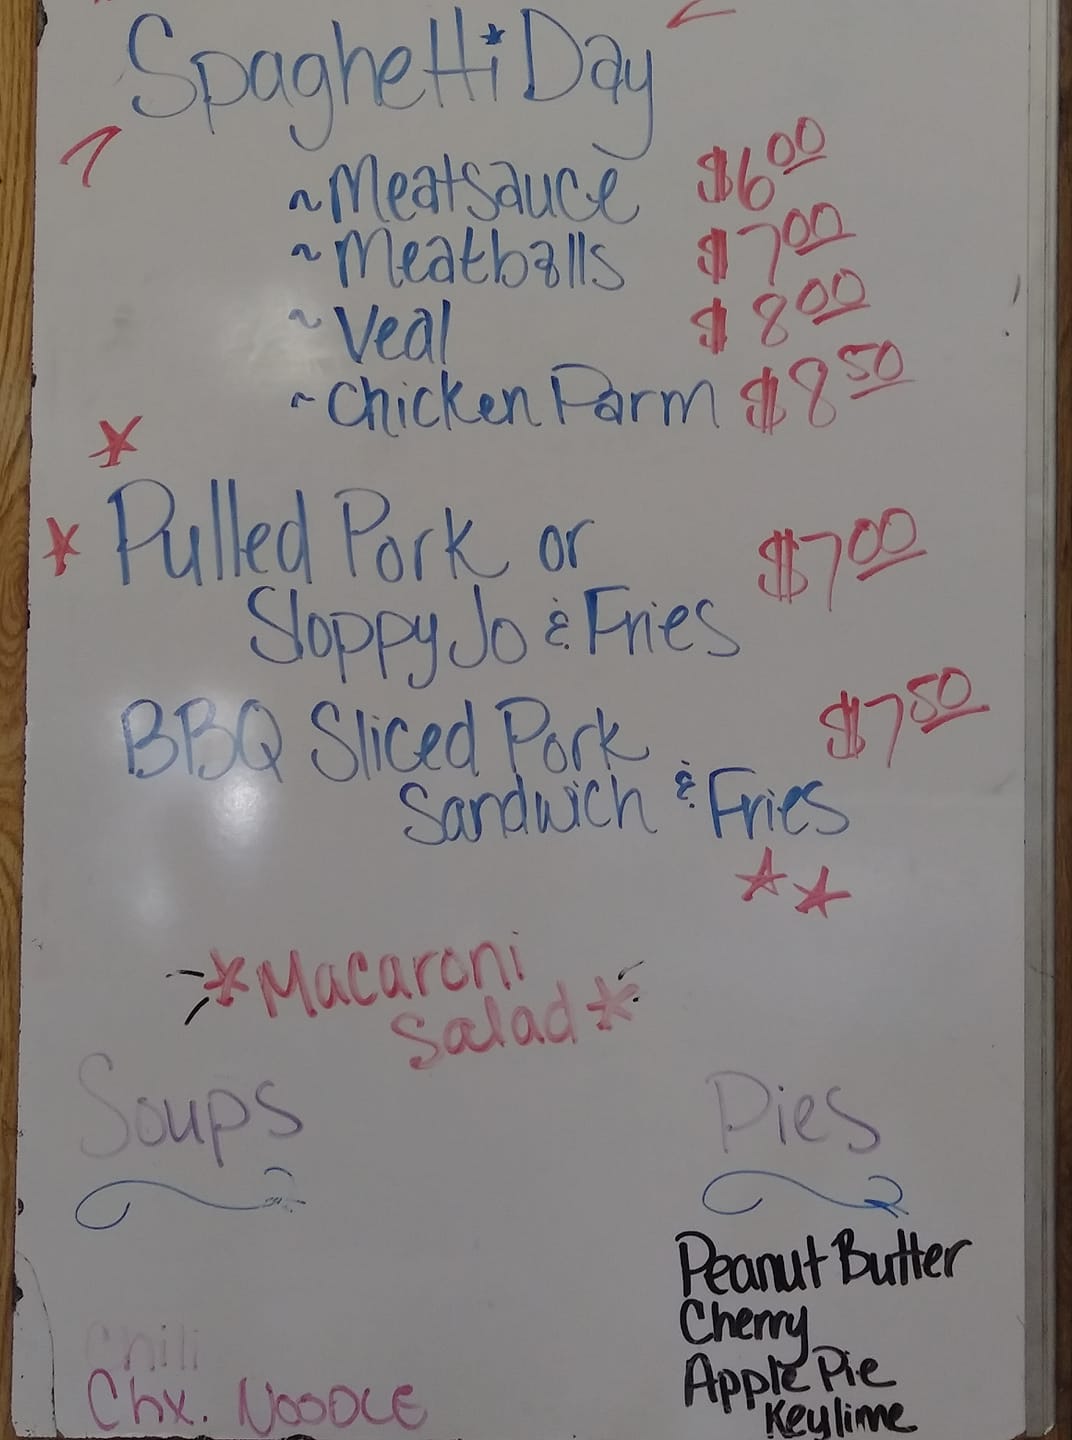 Spaghetti Day
~Meatsauce $6.00
~Meatballs $7.00
~Veal $8.00
~Chicken Parm $8.50
Pulled Pork or $7.00
Sloppy Jo & Fries
BBQ Sliced Pork $7.50
Sandwich & Fries
*Macaroni
Salad*
Soups
Pies
Peanut Butter
Cherry
Chili
Apple Pie
Chx. Noodle
Keylime